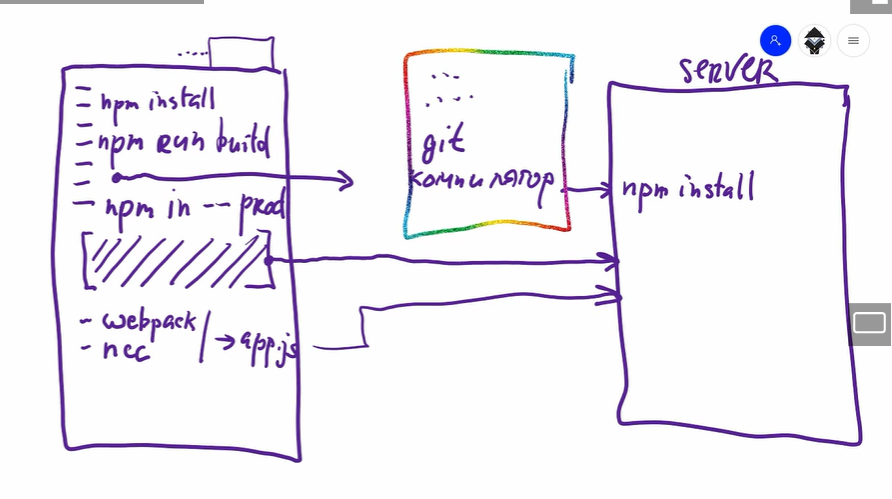 npm install
npm run build
npm in -- prod
- webpack
- ncc
→ app.js
git
компилятор
SERVER
npm install